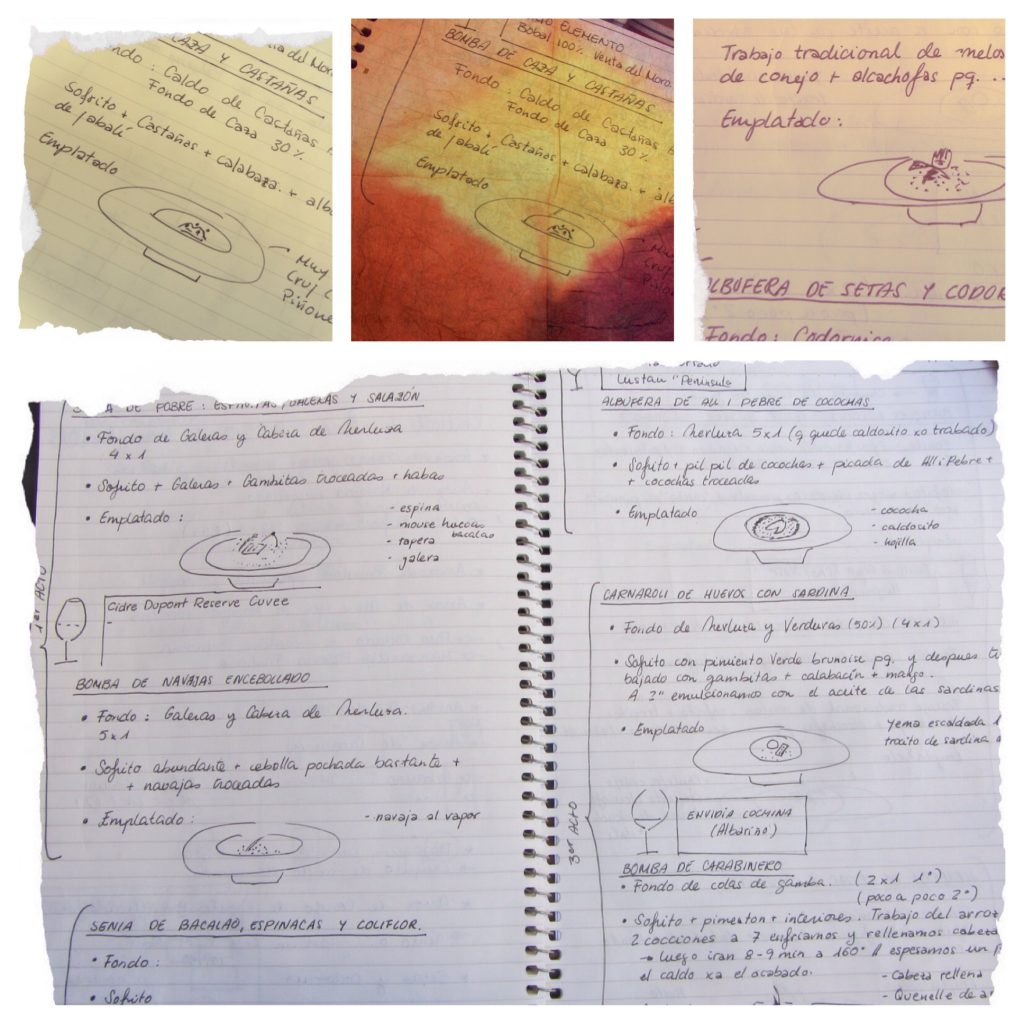 CAZA Y CASTAÑAS
Fondo : Caldo de Castañas
Fondo de Caza 30%.
Sofrito + Castañas + calabaza. + alb
de jabalí
Emplatado
→ Muy
Cruj
Piñone
ELEMENTO
Bobal 100%. Venta del Moro.
BOMBA DE CAZA Y CASTAÑAS
Fondo : Caldo de Castañas
Fondo de Caza 30%.
Sofrito + Castañas + calabaza. + alb
de jabalí
Emplatado
→ Muy
Cruj
Piñone
Trabajo tradicional de melos
de conejo + alcachofas pq. ...
Emplatado :
ALBUFERA DE SETAS Y CODOR
Fondo : Codornice
DE POBRE : ESPINACAS, GALERAS Y SALAZÓN
• Fondo de Galeras y Cabeza de Merluza
4 x 1
• Sofrito + Galeras + Gambitas troceadas + habas
• Emplatado :
- espina
- mouse huevas
bacalao
- tapera
- galera
1er ACTO
Cidre Dupont Reserve Cuvee
-
BOMBA DE NAVAJAS ENCEBOLLADO
• Fondo : Galeras y Cabeza de Merluza.
5 x 1
• Sofrito abundante + cebolla pochada bastante +
+ navajas troceadas
• Emplatado :
- navaja al vapor
SENIA DE BACALAO, ESPINACAS Y COLIFLOR.
• Fondo :
• Sofrito
Lustau "Península"
ALBUFERA DE ALL I PEBRE DE COCOCHAS
• Fondo : Merluza 5x1 (q quede caldosito xo trabado)
• Sofrito + pil pil de cocochas + picada de All i Pebre +
+ cocochas troceadas
• Emplatado
- cococha
- caldosito
- hojilla
CARNAROLI DE HUEVOS CON SARDINA
• Fondo de Merluza y Verduras (50%) (4x1)
• Sofrito con pimiento Verde brunoise pq. y despues
bajado con gambitas + calabacín + mango.
A 2" emulsionamos con el aceite de las sardinas
• Emplatado
Yema escaldada
trocito de sardina
3er ACTO
ENVIDIA COCHINA
(Albariño)
BOMBA DE CARABINERO
• Fondo de colas de gamba. (2x1 1º)
(poco a poco 2º)
• Sofrito + pimenton + interiores. Trabajo del arroz
2 cocciones a 7 enfriamos y rellenamos cabeza
→ luego iran 8-9 min a 160º // espesamos un
el caldo xa el acabado.
- Cabeza rellena
- Quenelle de